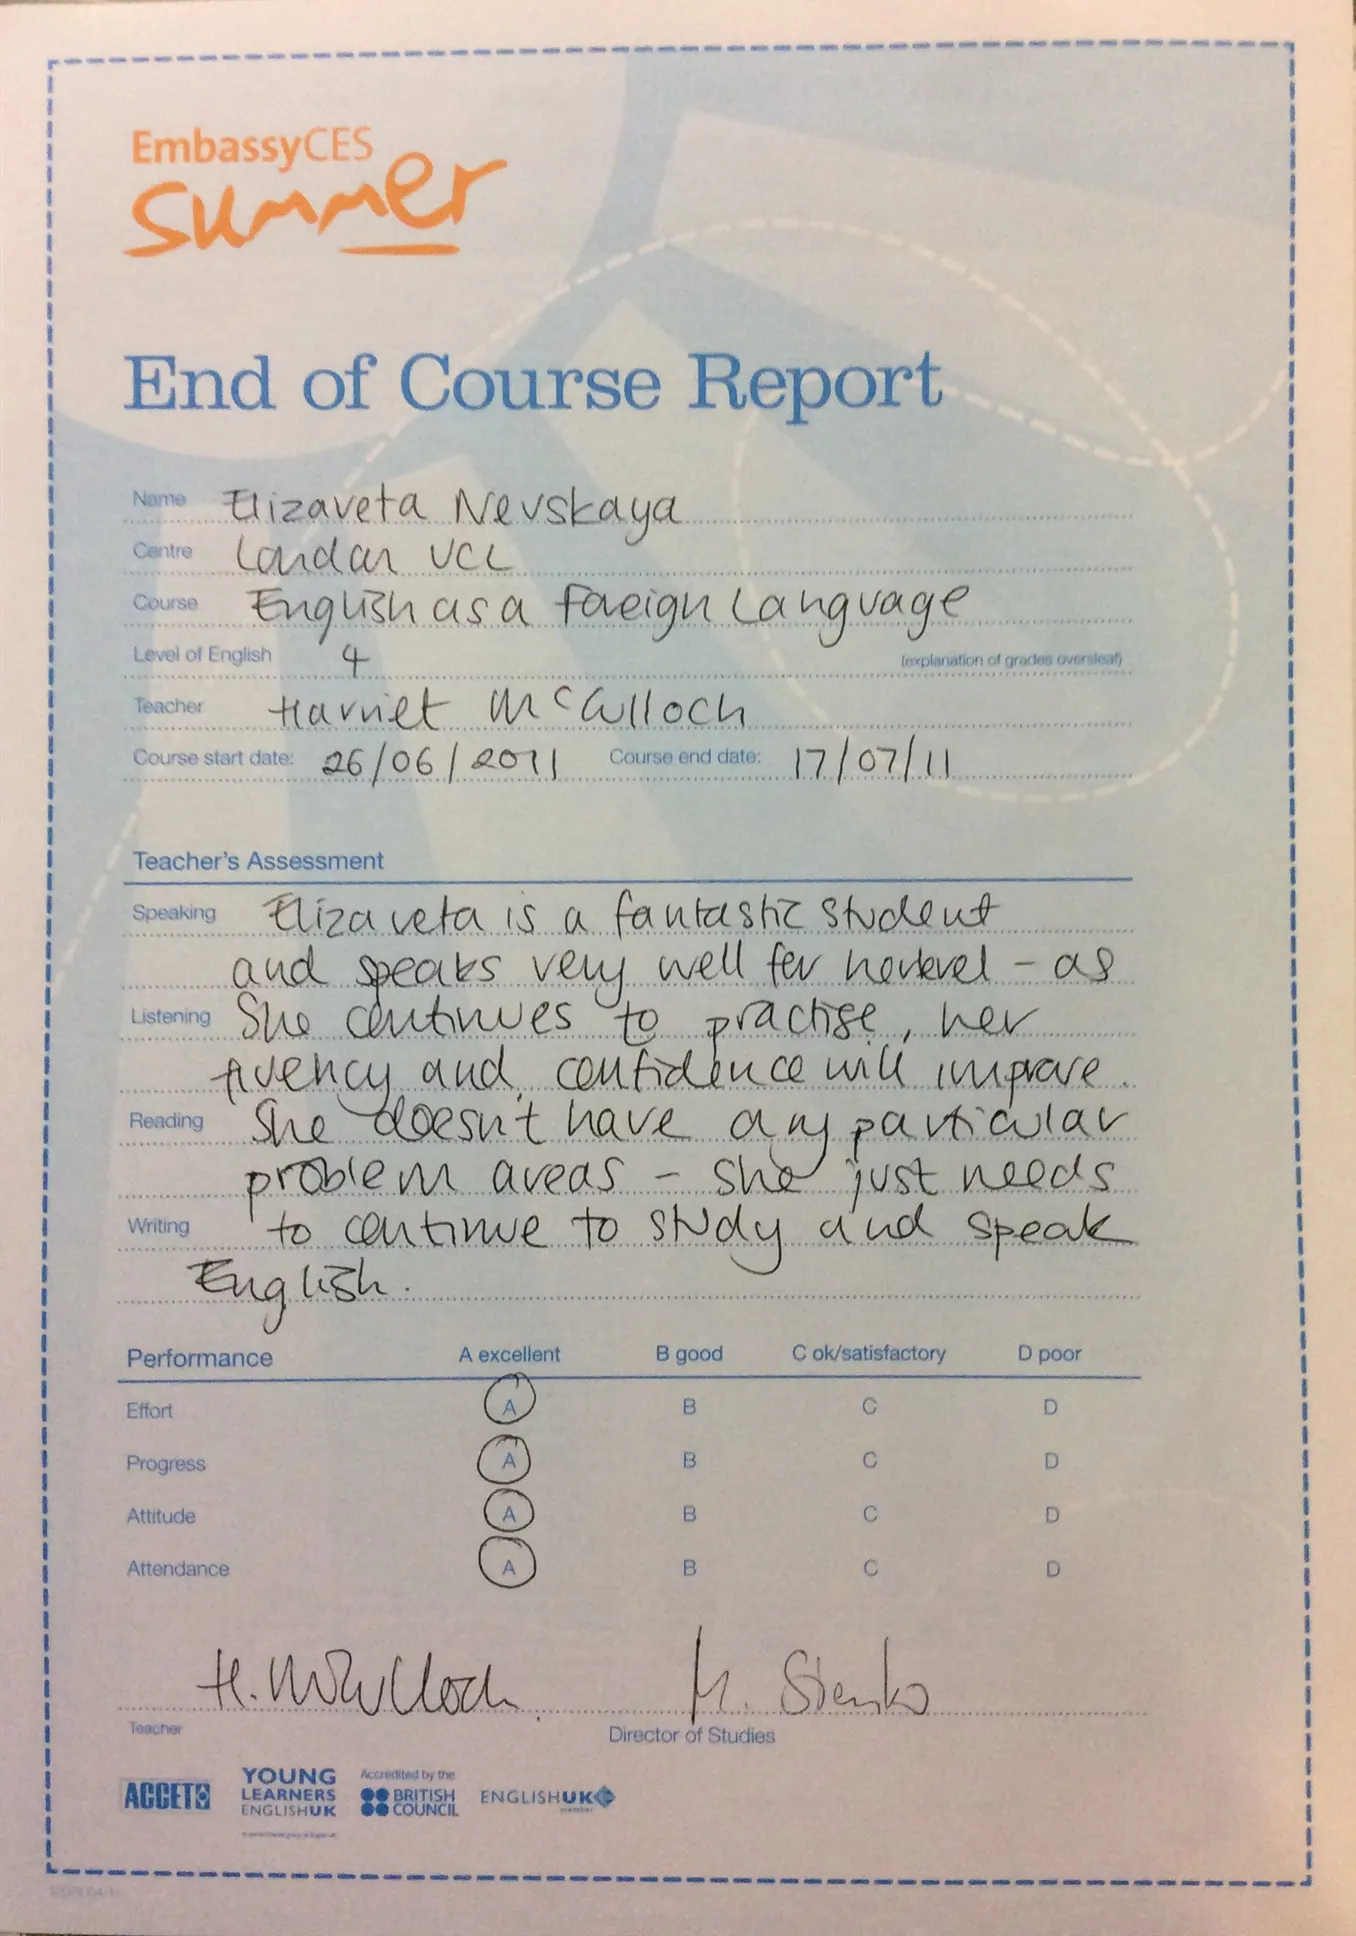 EmbassyCES
summer
End of Course Report
Name Elizaveta Nevskaya
Centre London UCL
Course English as a Foreign Language
Level of English 4 (explanation of grades overleaf)
Teacher Harriet McCulloch
Course start date: 26/06/2011 Course end date: 17/07/11
Teacher's Assessment
Speaking Elizaveta is a fantastic student
and speaks very well for her level - as
Listening She continues to practise, her
fluency and confidence will improve.
Reading She doesn't have any particular
problem areas - she just needs
Writing to continue to study and speak
English.
Performance A excellent B good C ok/satisfactory D poor
Effort A B C D
Progress A B C D
Attitude A B C D
Attendance A B C D
H. McCulloch
Teacher Director of Studies
ACCET
YOUNG
LEARNERS
ENGLISHUK
Accredited by the
BRITISH
COUNCIL
ENGLISHUK
member